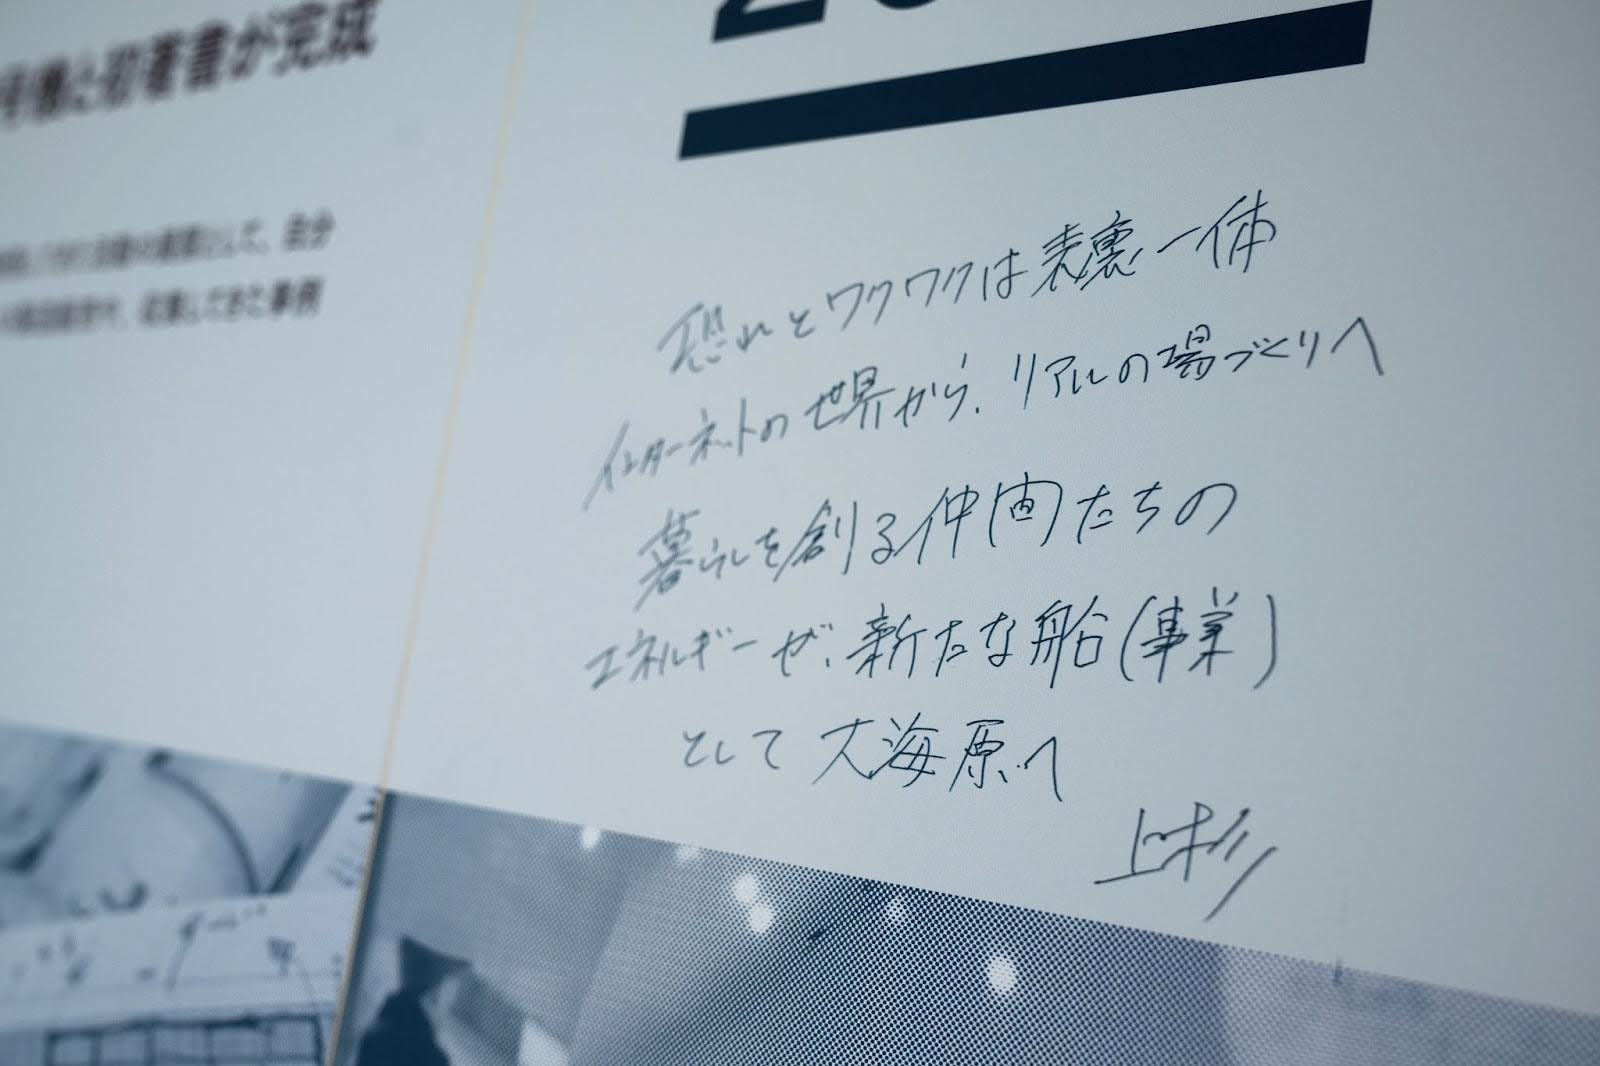 と初著書が完成
として、自分
してきた事例
2
恐れとワクワクは表裏一体
インターネットの世界から、リアルの場づくりへ
暮らしを創る仲間たちの
エネルギーが、新たな船(事業)
として大海原へ
上杉